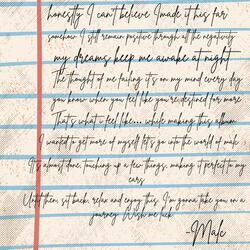 honestly I can't believe I made it this far
somehow I still remain positive through all the negativity
my dreams keep me awake at night
The thought of me failing it's on my mind every day
you know when you feel like you're destined for more
That's what i feel like... while making this album
I wanted to get more of myself let's go into the world of male
It's almost done, touching up a few things, making it perfect to my
ears
Until then, sit back, relax and enjoy this. I'm gonna take you on a
journey. Wish me luck
-Male